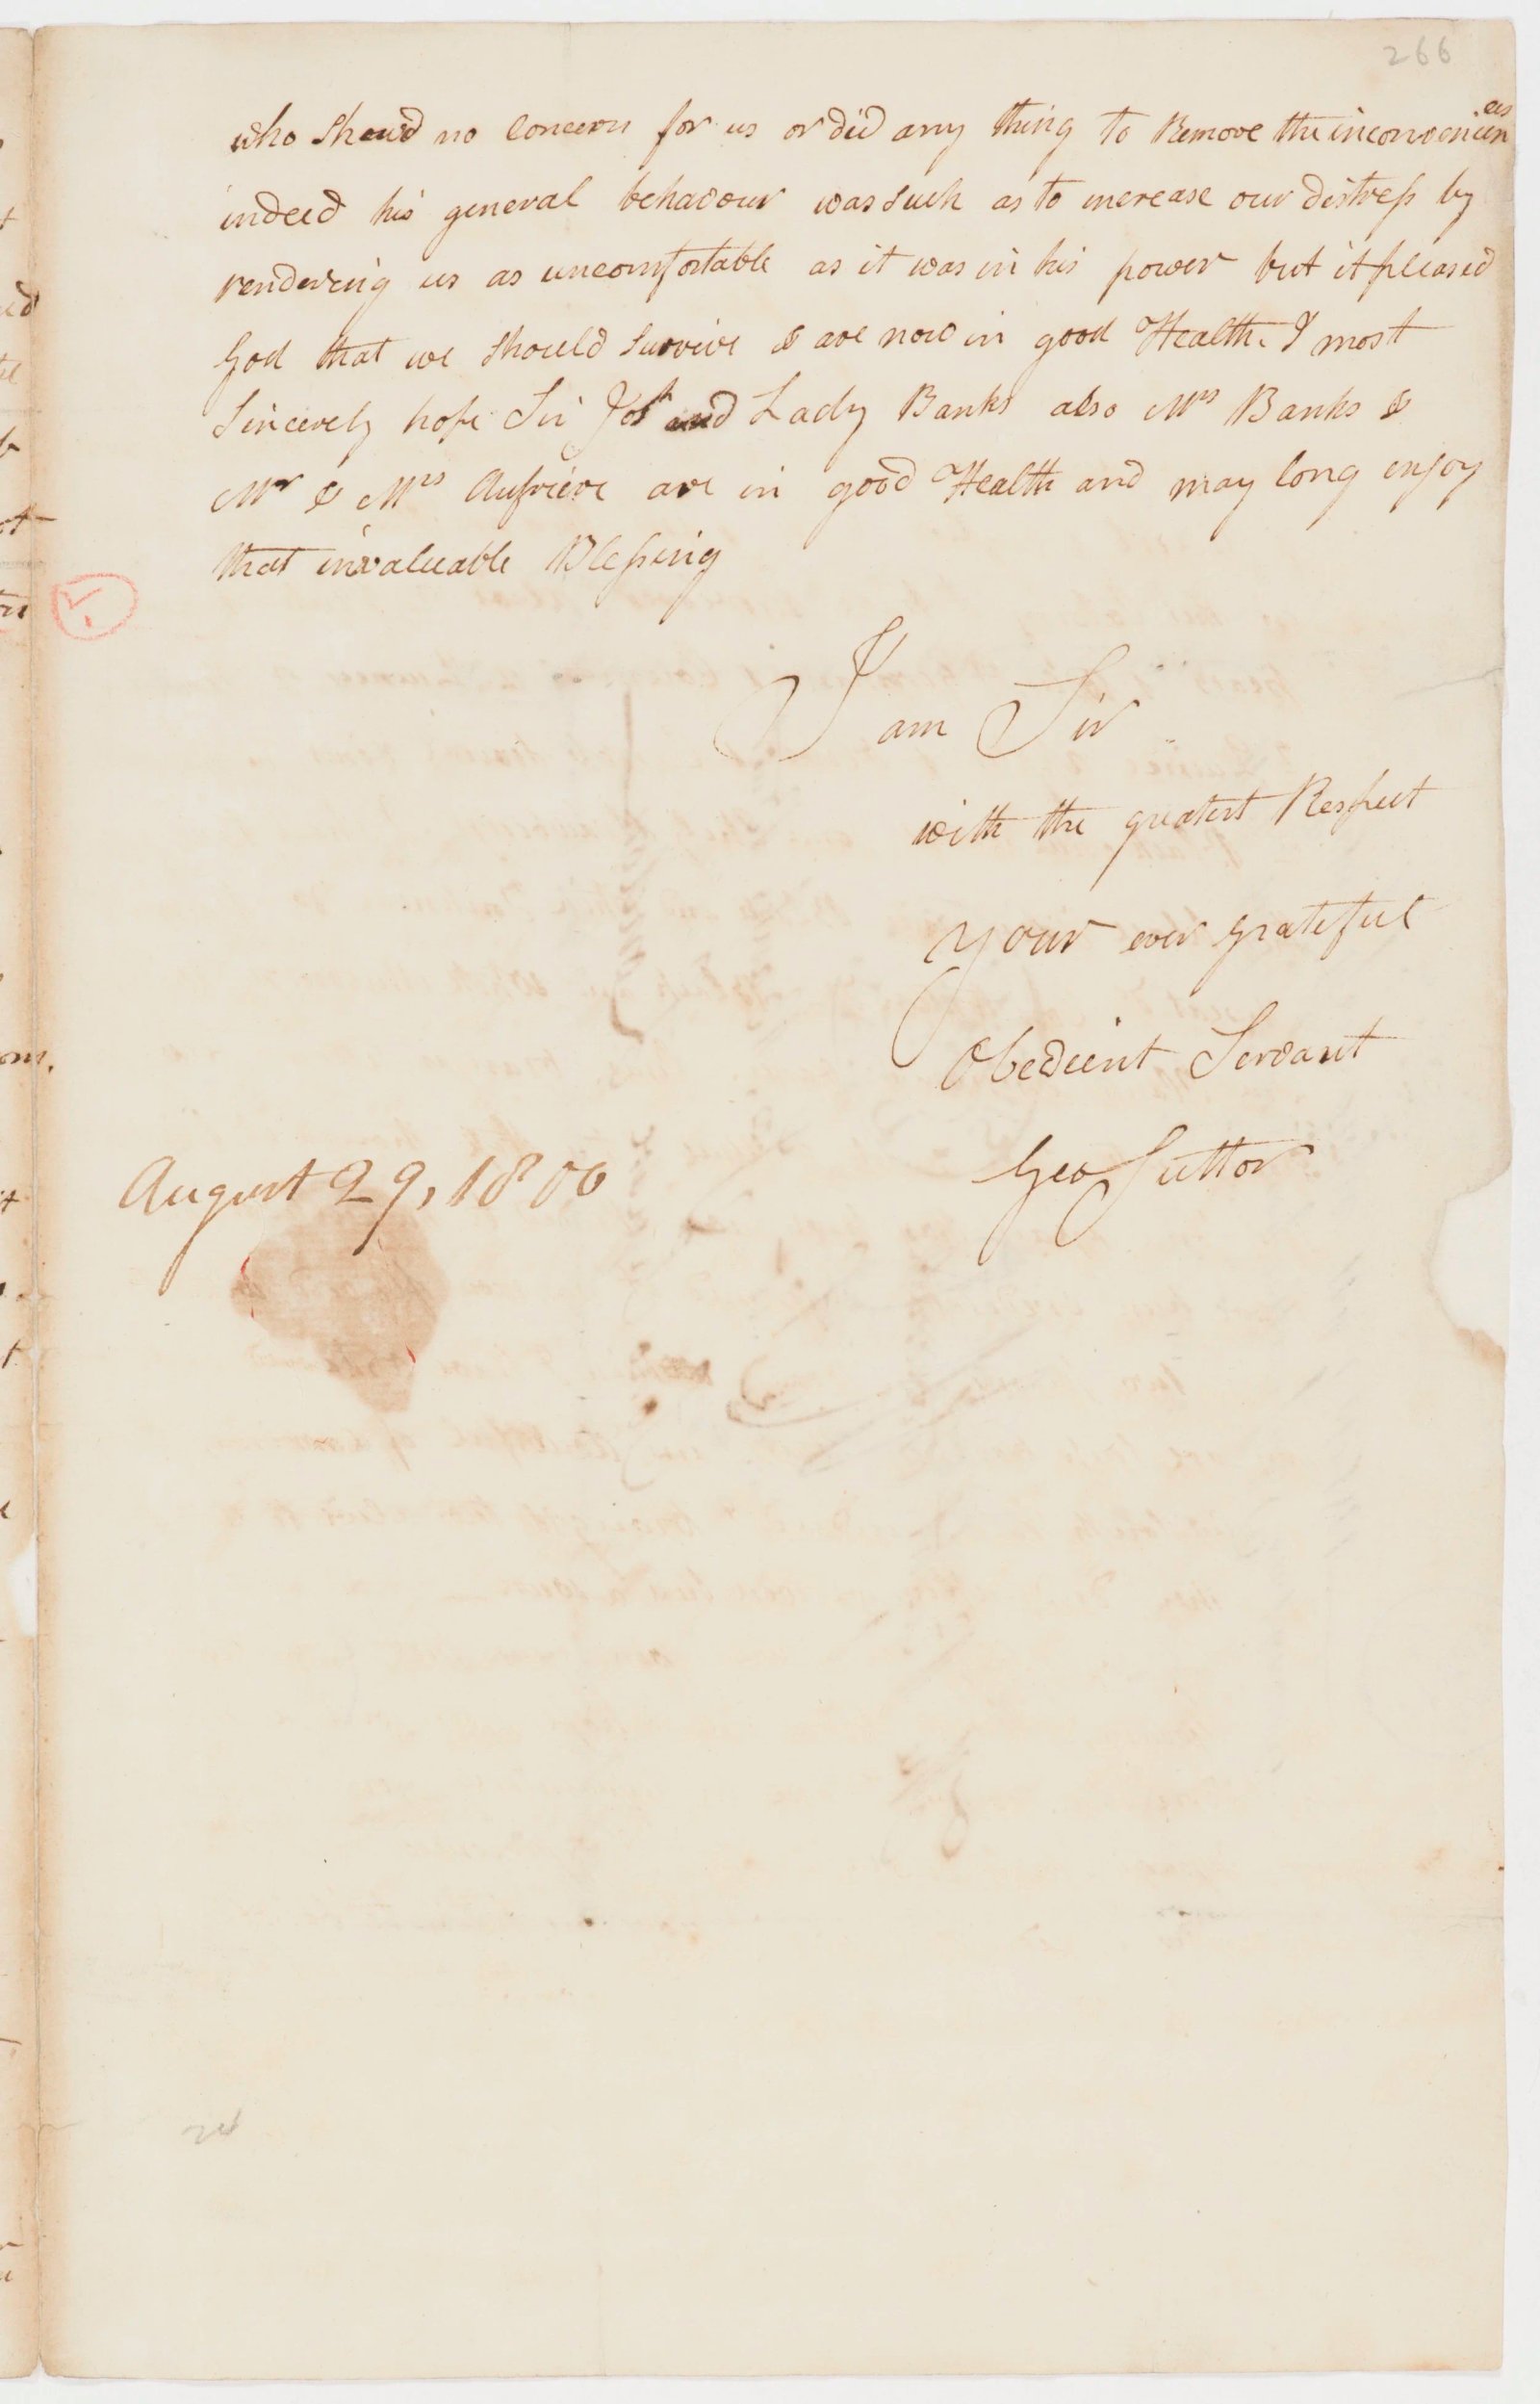 266
who Shewd no Concern for us or did any thing to Remove the inconveniences
indeed his general behavour was such as to increase our distress by
rendering us as uncomfortable as it was in his power but it pleased
God that we should Survive & are now in good Health. I most
Sincerely hope Sir Josh and Lady Banks also Mrs Banks &
Mr & Mrs Aufriere are in good Health and may long enjoy
that invaluable Blessing
I am Sir
with the greatest Respect
your ever grateful
Obedient Servant
Geo Suttor
August 29, 1800